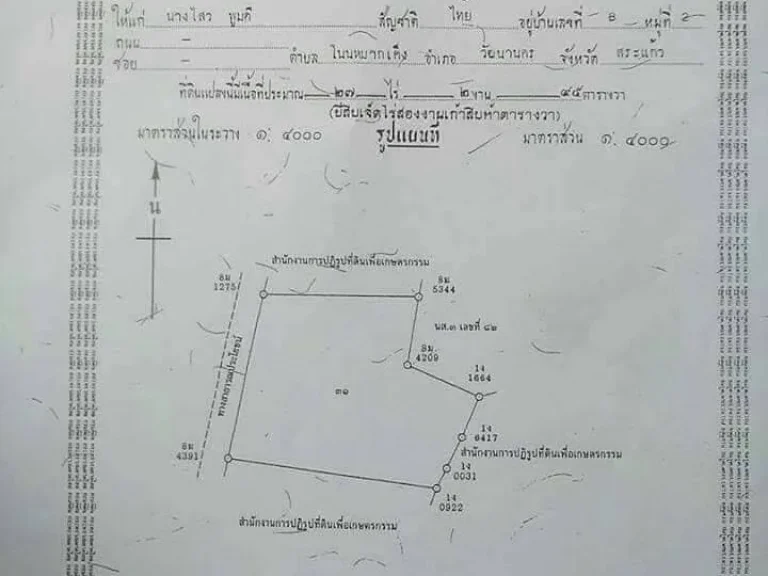 ให้แก่ นางไสว ชูมดี สัญชาติ ไทย อยู่บ้านเลขที่ - 8 หมู่ที่ 2
ถนน -
ซอย - ตำบล โนนหมากเค็ง อำเภอ วัฒนานคร จังหวัด สระแก้ว
ที่ดินแปลงนี้มีเนื้อที่ประมาณ ๒๗ ไร่ ๒ งาน ๙๕ ตารางวา
(ยี่สิบเจ็ดไร่สองงานเก้าสิบห้าตารางวา)
มาตราส่วนในระวาง ๑: ๔๐๐๐ รูปแผนที่ มาตราส่วน ๑: ๔๐๐๐
น
สำนักงานการปฏิรูปที่ดินเพื่อเกษตรกรรม
8ม
1275
8ม
5344
นส.๓ เลขที่ ๘๒
8ม.
4209
1ง
1664
ทางสาธารณประโยชน์
๓๑
1ง
6417
สำนักงานการปฏิรูปที่ดินเพื่อเกษตรกรรม
8ม
4391
1ง
0031
1ง
0922
สำนักงานการปฏิรูปที่ดินเพื่อเกษตรกรรม